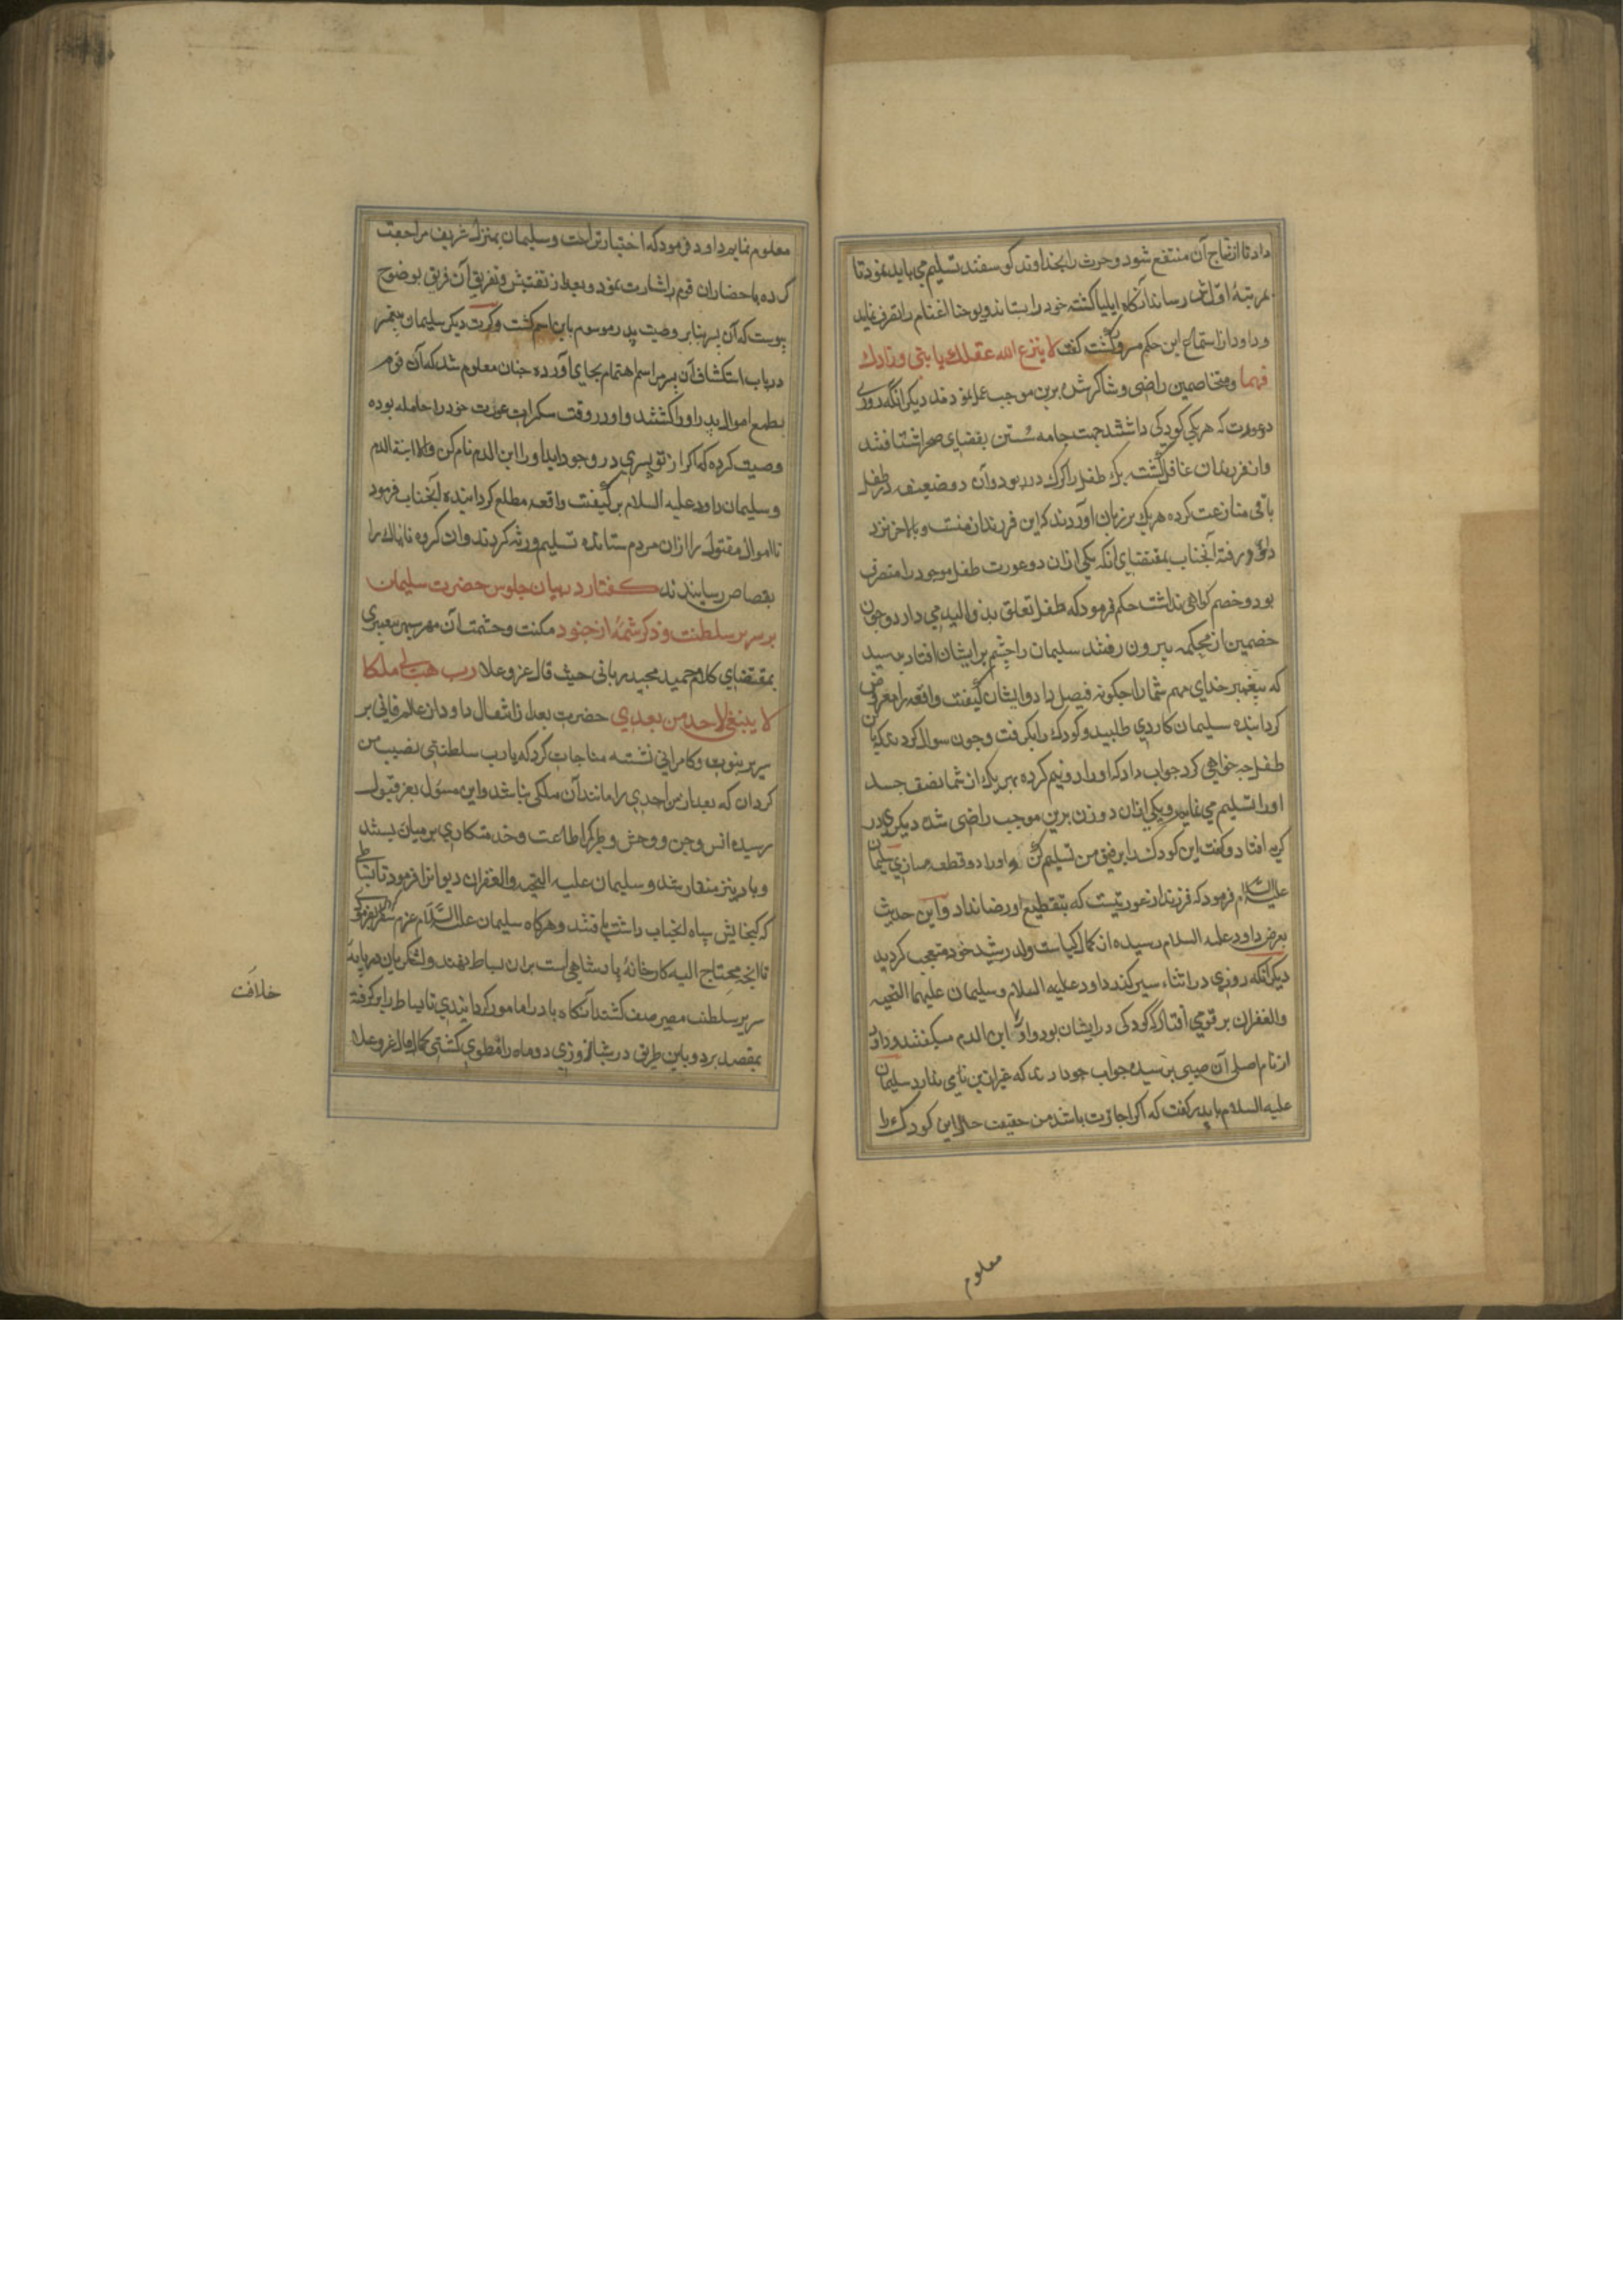 داد تا از نتاج آن منتفع شود و حرث را بخداوند کوسفند تسلیم می باید نمود تا
بمرتبهٔ اول اش رساند آنکاه ایلیا کشته خود را بستاند و یوحنا اغنام را تصرف نماید
و داود از استماع این حکم مسرور کشت کفت لا ینزع الله عقلک یا بنی و زادک
فهما و متخاصمین راضی و شاکر شده برین موجب عمل نمودند دیکر انکه روزی
دو عورت که هر یکی کودکی داشتند جهت جامه شستن بفضای صحرا شتافتند
و از فرزندان غافل کشته یک طفل را کرک در ربود و آن دو ضعیفه در طفل
باقی منازعت کرده هر یک بر زبان آوردند که این فرزندان منست و بالاخر نزد
داود رفته آنجناب بمقتضای انکه یکی ازان دو عورت طفل موجود را متصرف
بود و خصم کواهی نداشت حکم فرمود که طفل تعلق بذوالید می دارد و چون
خصمین از محکمه بیرون رفتند سلیمان را چشم بر ایشان افتاد پرسید
که پیغمبر خدای مهم شما را چکونه فیصل داد و ایشان کیفیت واقعه را معروض
کردانیده سلیمان کاردی طلبید و کودک را بکرفت و چون سوال کردند که باین
طفل چه خواهی کرد جواب داد که او را دو نیم کرده بهر یک از شما نصف جسد
او را تسلیم می نمایم و یکی ازان دو زن برین موجب راضی شده دیکری در
کریه افتاد و کفت این کودک را برفیق من تسلیم کن و او را دو قطعه مسازی سلیمان
علیه السلام فرمود که فرزند از عورتیست که بتقطیع او رضا نداد و این حدیث
بعرض داود علیه السلام رسیده از کمال کیاست ولد رشید خود متعجب کردید
دیکر انکه روزی در اثناء سیر کذر داود علیه السلام و سلیمان علیهما التحیه
والغفران بر قومی افتاد که کودکی در ایشان بود و او را ابن الدم میکفتند و داود
از نام اصلی آن صبی پرسیده جواب دادند که غیر ازین نامی ندارد سلیمان
علیه السلام با پدر کفت که اکر اجازت باشد من حقیقت حال این کودک را
معلوم
معلوم نمایم داود فرمود که اختیار تراست و سلیمان بمنزل شریف مراجعت
کرده باحضار ان قوم اشارت نمود و بعد از تفتیش و تفریق آن فریق بوضوح
پیوست که آن پسر بنابر وصیت پدر موسوم باین اسم کشت و کرت دیکر سلیمان
در باب استکشاف آن سر مراسم اهتمام بجای آورده چنان معلوم شد که آن قوم
بطمع اموال پدر او را کشتند و او در وقت سکرات عورت خود را حامله بوده
وصیت کرده که اکر از تو پسری در وجود اید او را ابن الدم نام کن والا ابنة الدم
و سلیمان داود علیه السلام بر کیفیت واقعه مطلع کردانیده آنجناب فرمود
تا اموال مقتول را ازان مردم ستانده تسلیم ورثه کردند وان کروه ناپاک را
بقصاص رسانیدند کفتار در بیان جلوس حضرت سلیمان
بر سریر سلطنت و ذکر شمهٔ از جنود مکنت و حشمت آن مهر سپهر پیغمبری
بمقتضای کلام حمید مجید ربانی حیث قال عز و علا رب هب لی ملکا
لا ینبغی لاحد من بعدی حضرت بعد از انتقال داود از عالم فانی بر
سریر نبوت و کامرانی نشسته مناجات کرد که یا رب سلطنتی نصیب من
کردان که بعد از من احدی را مانند آن ملکی نباشد و این مسؤل بعز قبول
رسیده انس و جن و وحش و طیر کمر اطاعت و خدمتکاری بر میان بستند
و باد نیز منقاد شد و سلیمان علیه التحیه والغفران دیوانرا فرمود تا بساطی
که کنجایش سپاه انجناب داشت بافتند و هرکاه سلیمان علیه السلام عزم سفر فرمودی
تا انچه محتاج الیه کارخانهٔ پادشاهی است بران بساط نهند و لشکریان در پایه
سریر سلطنت مصیر صف کشند آنکاه باد را مامور کردانیدی تا بساط را بر کرفته
بمقصد برد و باین طریق در شبانروزی دو ماه راه طوی کشتی کما قال عز و علا
خلافت